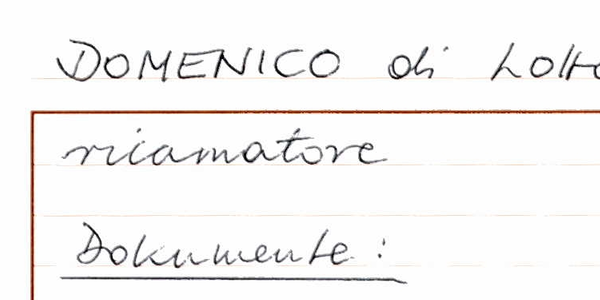 DOMENICO di Lotto
ricamatore
Dokumente: